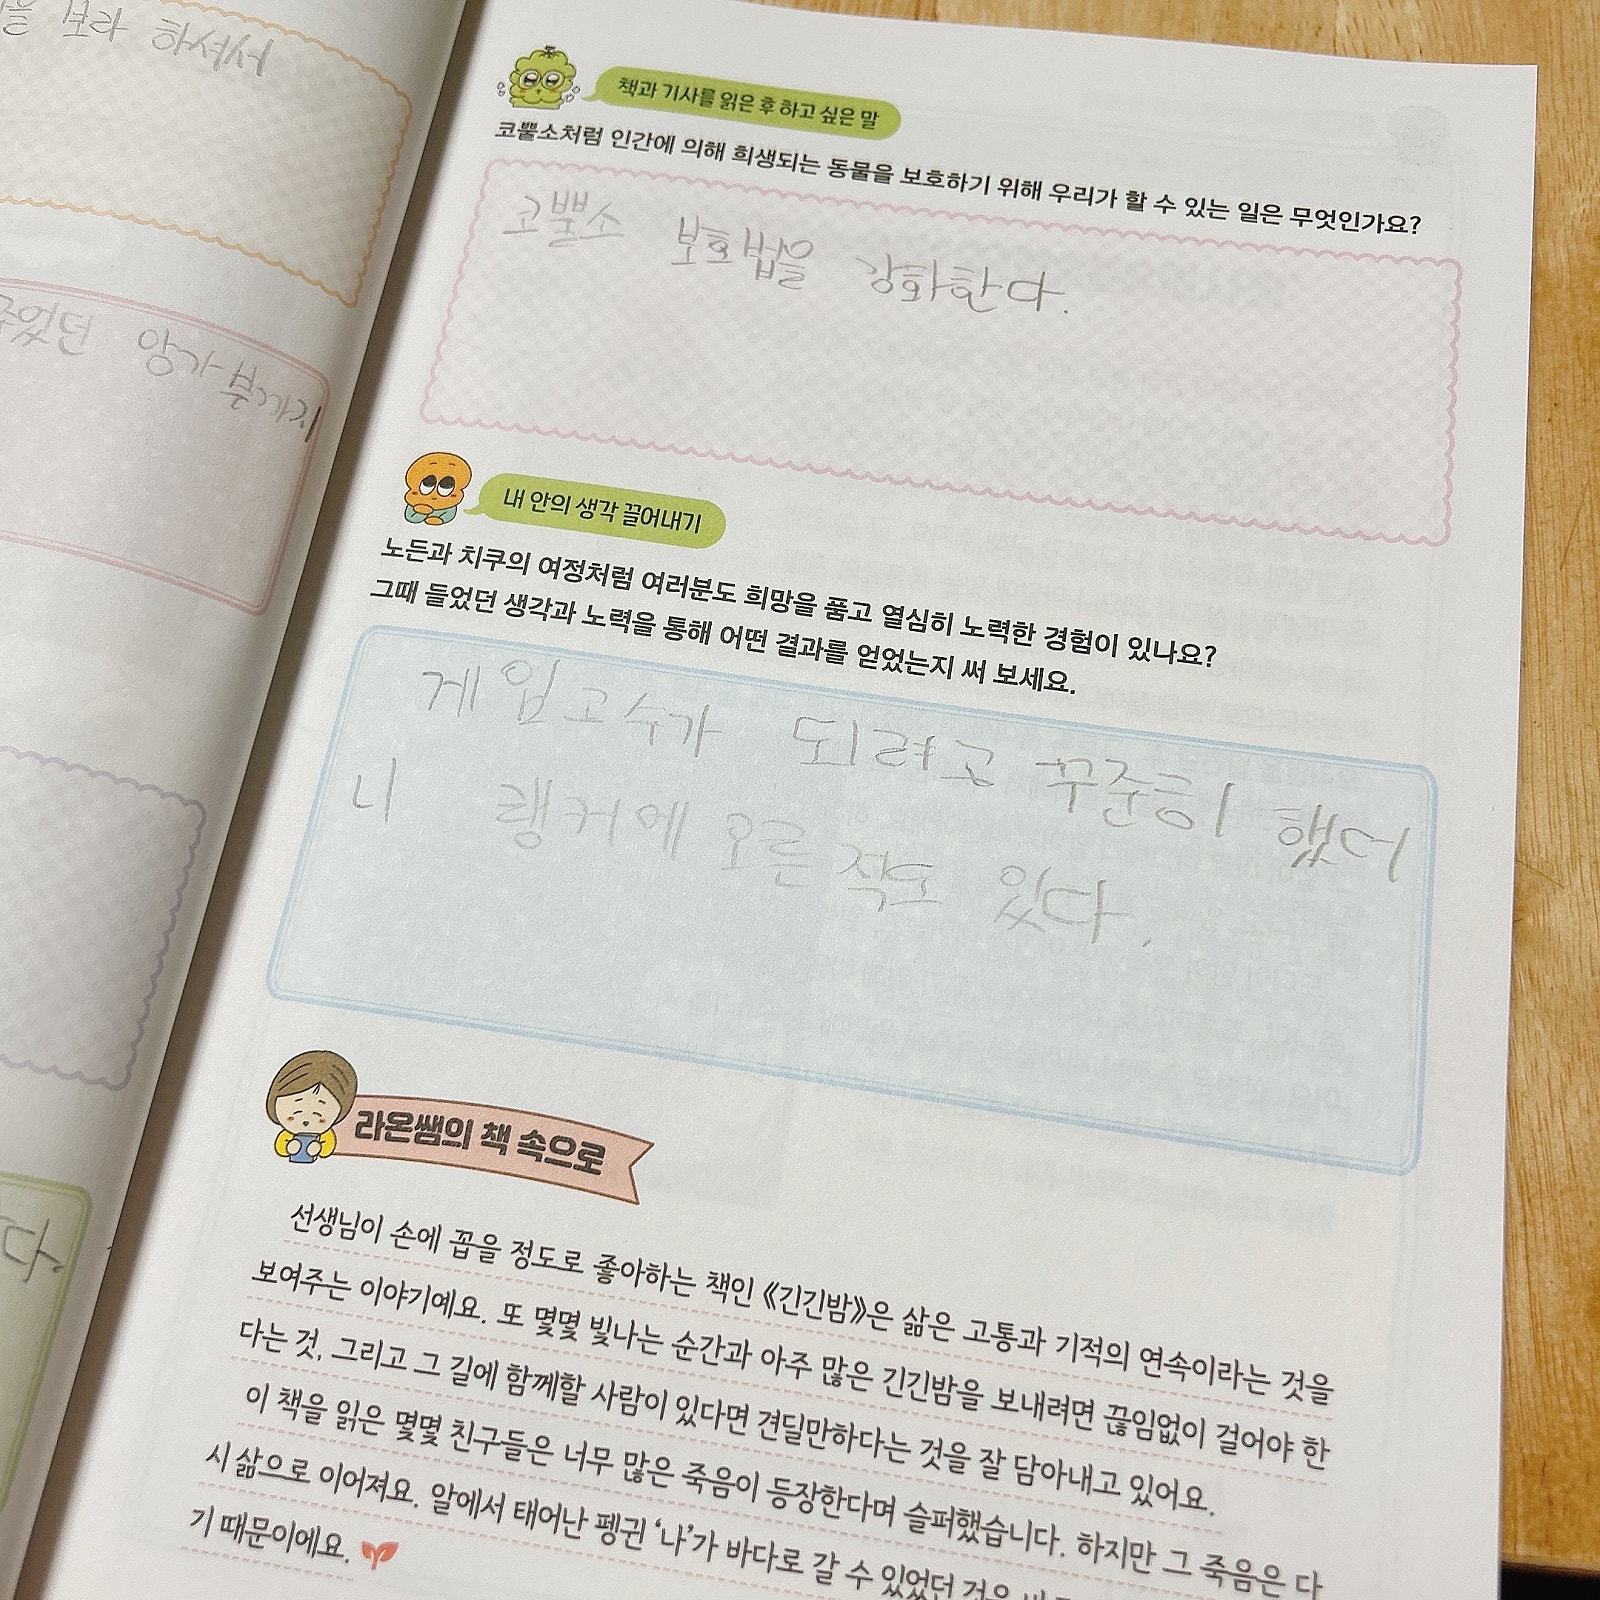 을 보라 하셔서
었던 앙가부가
다.
책과 기사를 읽은 후 하고 싶은 말
코뿔소처럼 인간에 의해 희생되는 동물을 보호하기 위해 우리가 할 수 있는 일은 무엇인가요?
코뿔소 보호법을 강화한다.
내 안의 생각 끌어내기
노든과 치쿠의 여정처럼 여러분도 희망을 품고 열심히 노력한 경험이 있나요?
그때 들었던 생각과 노력을 통해 어떤 결과를 얻었는지 써 보세요.
게임고수가 되려고 꾸준히 했더
니 랭커에 오른적도 있다.
라온쌤의 책 속으로
선생님이 손에 꼽을 정도로 좋아하는 책인 《긴긴밤》은 삶은 고통과 기적의 연속이라는 것을
보여주는 이야기예요. 또 몇몇 빛나는 순간과 아주 많은 긴긴밤을 보내려면 끊임없이 걸어야 한
다는 것, 그리고 그 길에 함께할 사람이 있다면 견딜만하다는 것을 잘 담아내고 있어요.
이 책을 읽은 몇몇 친구들은 너무 많은 죽음이 등장한다며 슬퍼했습니다. 하지만 그 죽음은 다
시 삶으로 이어져요. 알에서 태어난 펭귄 ‘나’가 바다로 갈 수 있었던 것은
기 때문이에요.